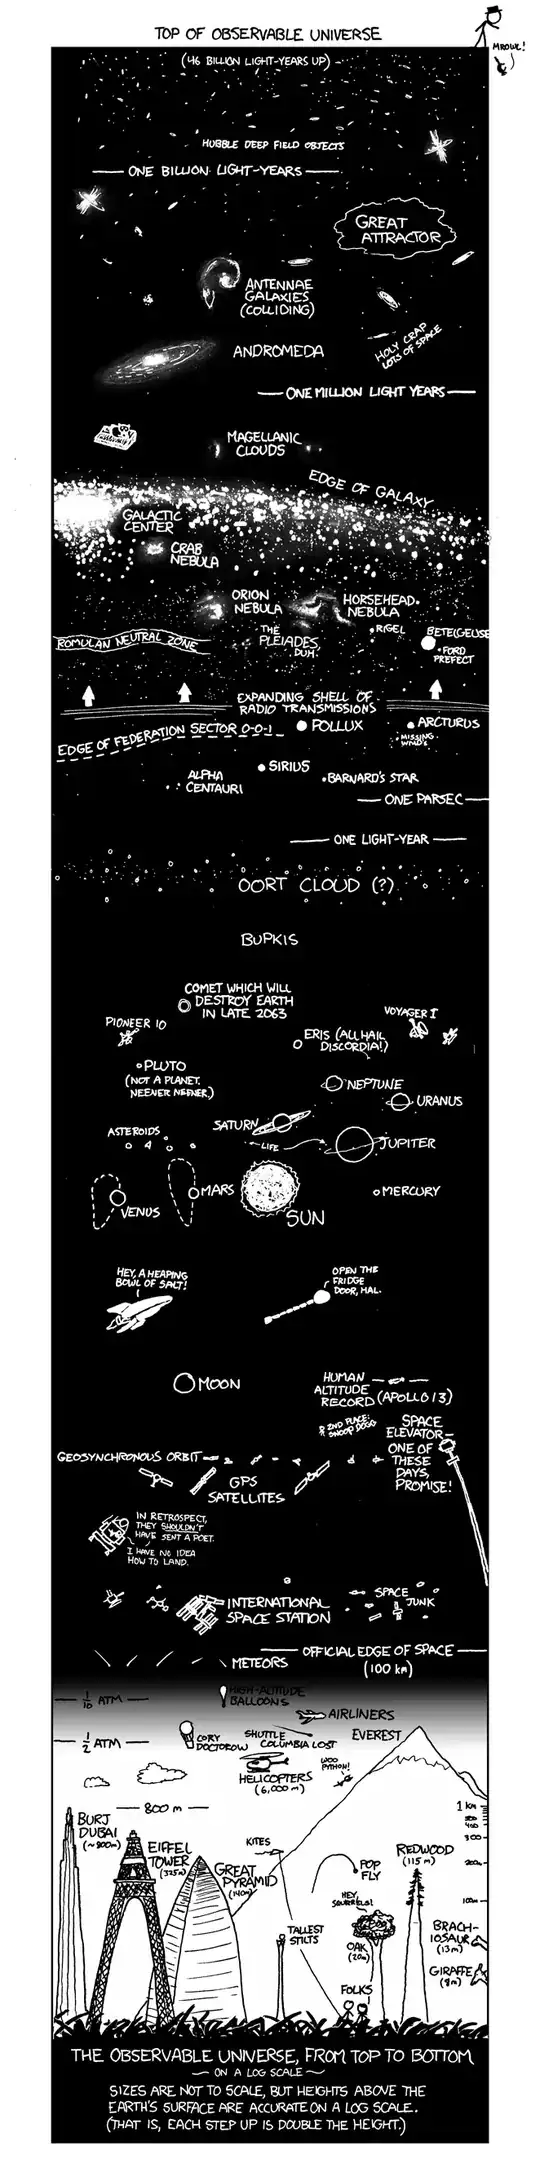 TOP OF OBSERVABLE UNIVERSE
MROWL!
(46 BILLION LIGHT-YEARS UP)
HUBBLE DEEP FIELD OBJECTS
ONE BILLION LIGHT-YEARS
GREAT
ATTRACTOR
ANTENNAE
GALAXIES
(COLLIDING)
HOLY CRAP
LOTS OF SPACE
ANDROMEDA
ONE MILLION LIGHT YEARS
MAGELLANIC
CLOUDS
EDGE OF GALAXY
GALACTIC
CENTER
CRAB
NEBULA
ORION
NEBULA
HORSEHEAD
NEBULA
THE
PLEIADES,
DUH.
RIGEL
BETELGEUSE
FORD
PREFECT
ROMULAN NEUTRAL ZONE
EXPANDING SHELL OF
RADIO TRANSMISSIONS
EDGE OF FEDERATION SECTOR 0-0-1
POLLUX
ARCTURUS
MISSING
WMD'S
SIRIUS
ALPHA
CENTAURI
BARNARD'S STAR
ONE PARSEC
ONE LIGHT-YEAR
OORT CLOUD (?)
BUPKIS
COMET WHICH WILL
DESTROY EARTH
IN LATE 2063
PIONEER 10
VOYAGER I
ERIS (ALL HAIL
DISCORDIA!)
PLUTO
(NOT A PLANET.
NEENER NEENER.)
NEPTUNE
URANUS
SATURN
ASTEROIDS
LIFE
JUPITER
VENUS
MARS
SUN
MERCURY
HEY, A HEAPING
BOWL OF SALT!
OPEN THE
FRIDGE
DOOR, HAL.
MOON
HUMAN
ALTITUDE
RECORD (APOLLO 13)
2ND PLACE:
SNOOP DOGG
SPACE
ELEVATOR—
ONE OF
THESE
DAYS,
PROMISE!
GEOSYNCHRONOUS ORBIT
GPS
SATELLITES
IN RETROSPECT,
THEY SHOULDN'T
HAVE SENT A POET.
I HAVE NO IDEA
HOW TO LAND.
INTERNATIONAL
SPACE STATION
SPACE
JUNK
OFFICIAL EDGE OF SPACE
(100 km)
METEORS
1/10 ATM
HIGH-ALTITUDE
BALLOONS
AIRLINERS
1/2 ATM
CORY
DOCTOROW
SHUTTLE
COLUMBIA LOST
EVEREST
HELICOPTERS
(6,000 m)
WOO
PYTHON!
800 m
1 km
500
400
300
200m
100m
BURJ
DUBAI
(~800m)
EIFFEL
TOWER
(325m)
GREAT
PYRAMID
(140m)
KITES
POP
FLY
REDWOOD
(115 m)
HEY,
SQUIRRELS!
OAK
(20m)
TALLEST
STILTS
BRACH-
IOSAUR
(13m)
GIRAFFE
(8m)
FOLKS
THE OBSERVABLE UNIVERSE, FROM TOP TO BOTTOM
~ ON A LOG SCALE ~
SIZES ARE NOT TO SCALE, BUT HEIGHTS ABOVE THE
EARTH'S SURFACE ARE ACCURATE ON A LOG SCALE.
(THAT IS, EACH STEP UP IS DOUBLE THE HEIGHT.)